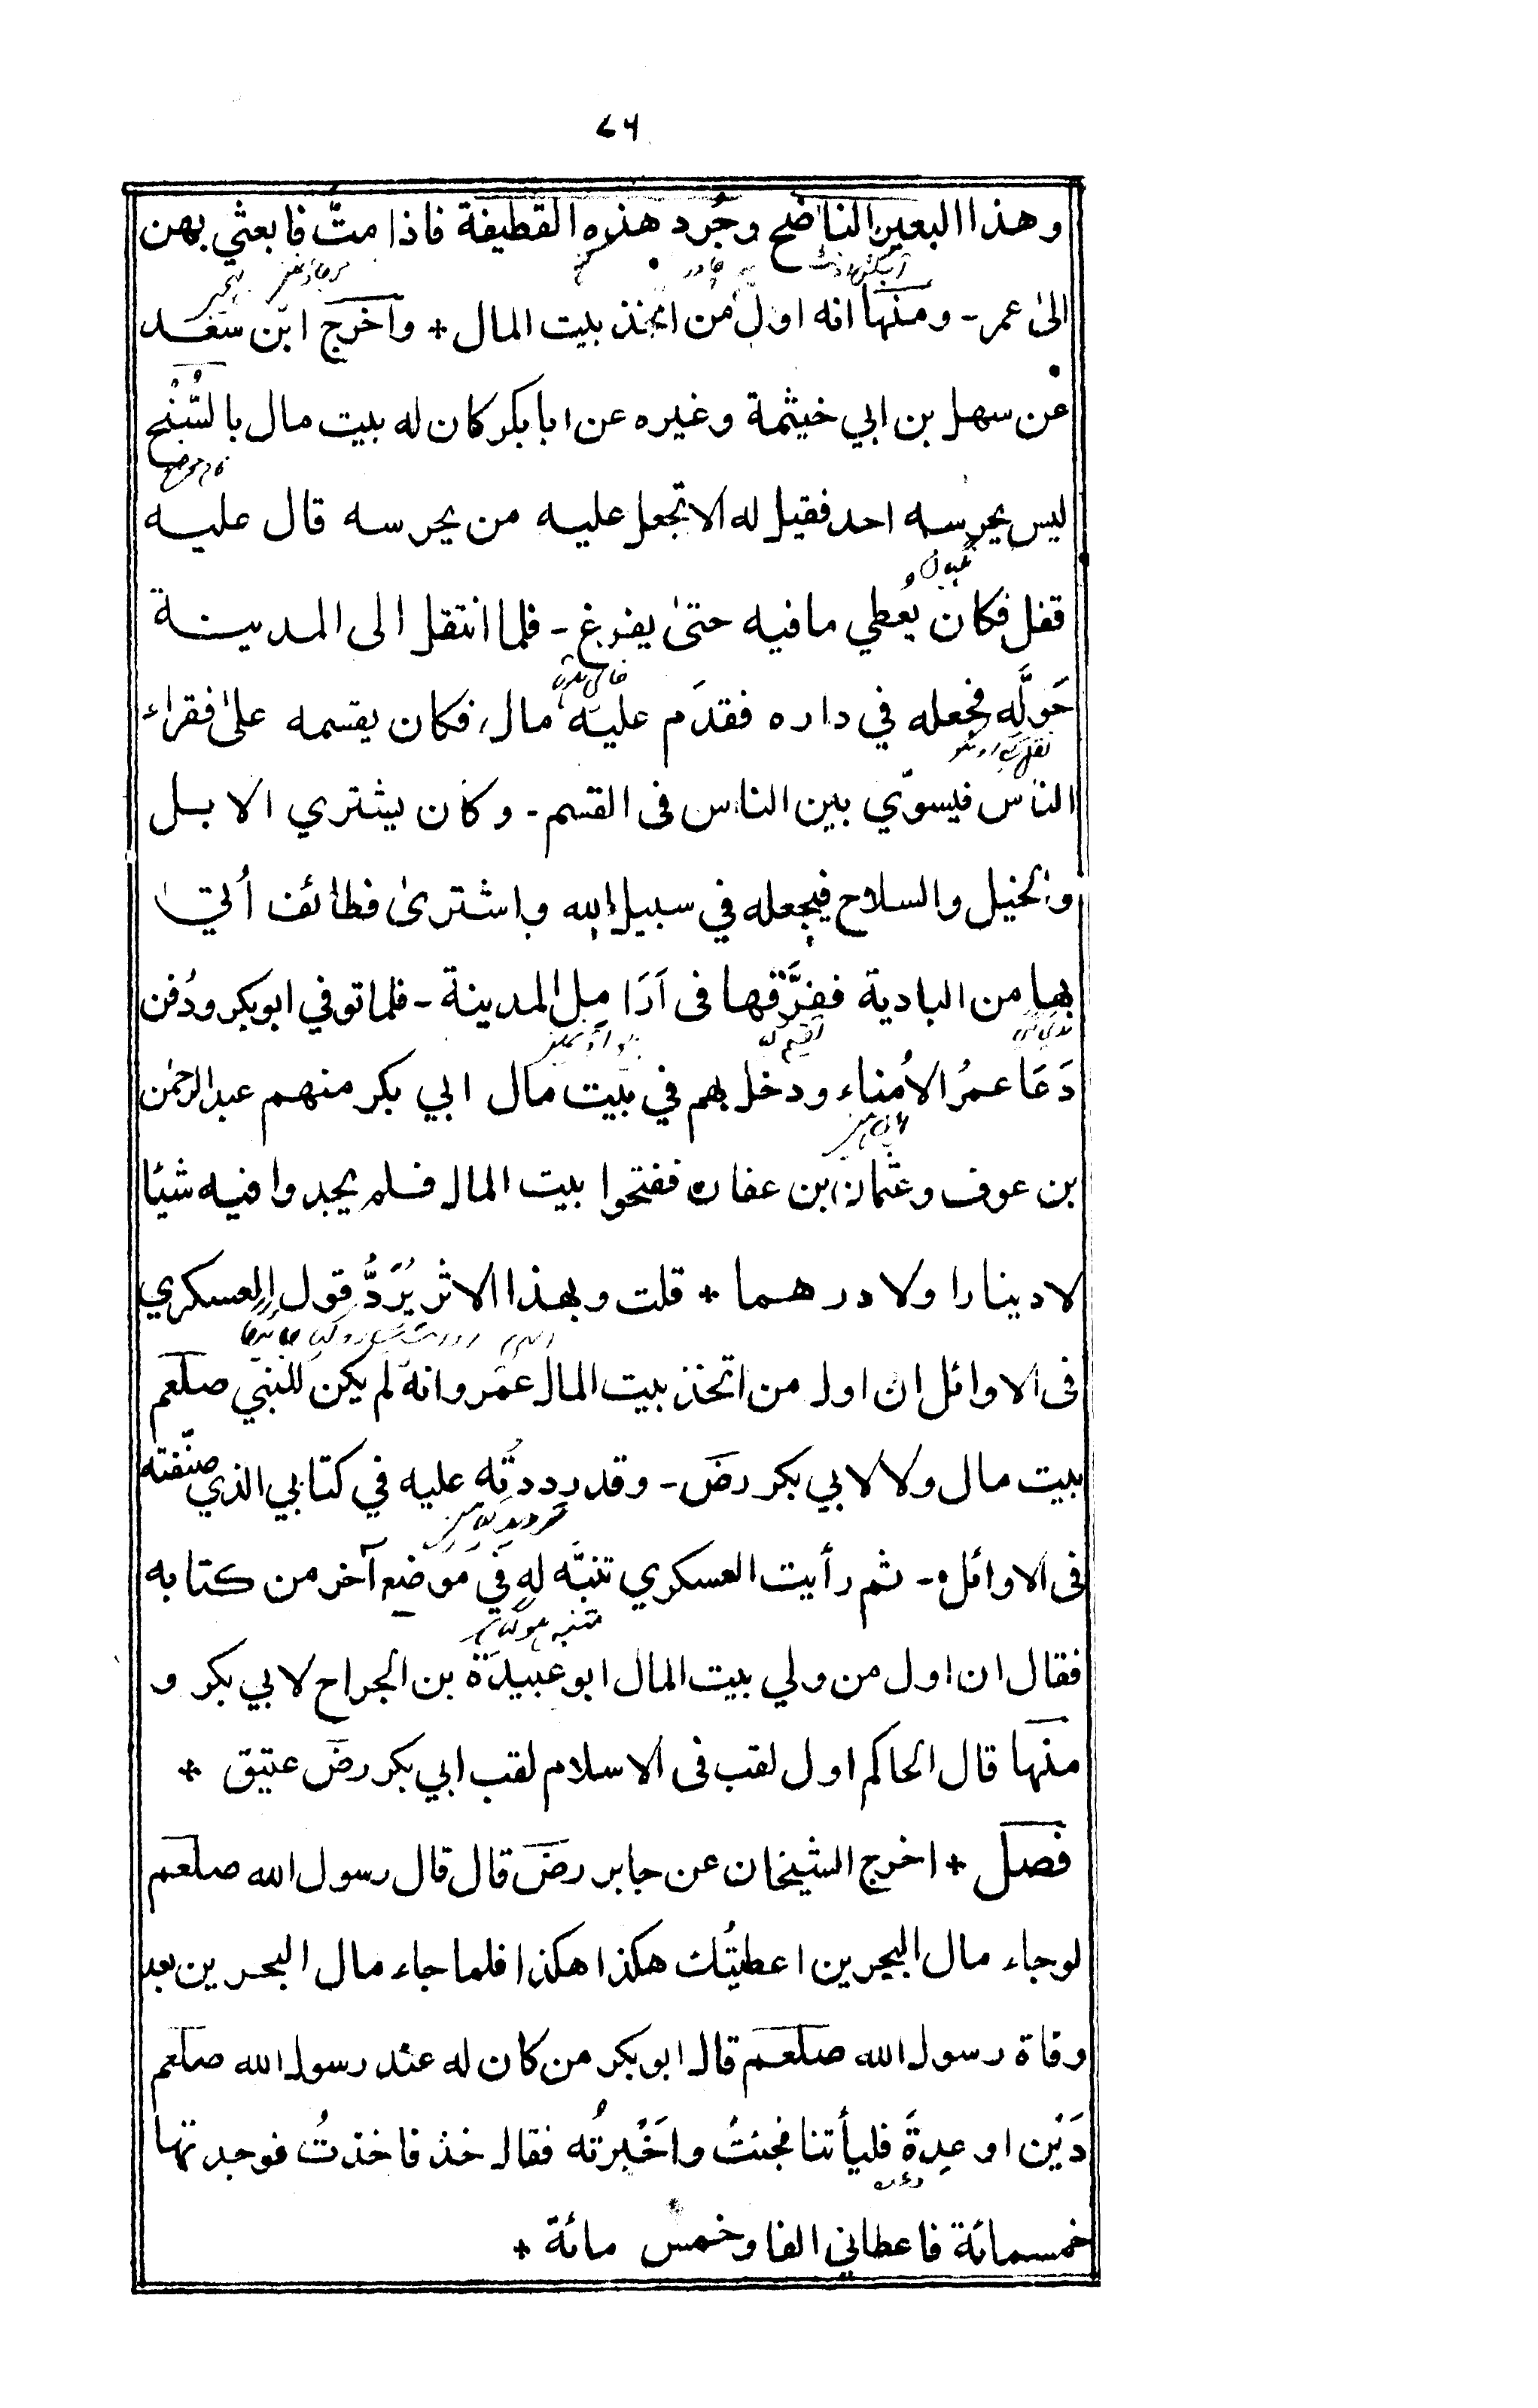 ۷۶
وهذا البعير الناضح وجُرد هذه القطيفة فاذا متّ فابعثي بهن
الىٰ عمر ـ ومنها انه اولُ من اتخذ بيت المال * واخرج ابن سعد
عن سهل بن ابي خيثمة وغيره عن ابا بكر كان له بيت مال بالسُّنْح
ليس يحرسه احد فقيل له الا تجعل عليه من يحرسه قال عليه
قفل فكان يُعطي ما فيه حتىٰ يفرغ ـ فلما انتقل الى المدينة
حَوَّلَه فجعله في داره فقدَم عليه مال فكان يقسمه علىٰ فقراء
الناس فيسوّي بين الناس فى القسم ـ وكان يشتري الابل
والخيل والسلاح فيجعله في سبيل الله واشترىٰ قطائف أُتي
بها من البادية ففرَّقها فى اَرَامِل المدينة ـ فلما توفي ابوبكر ودُفن
دَعَا عمرُ الاُمناء ودخل بهم في بيت مال ابي بكر منهم عبد الرحمٰن
بن عوف وعثمان بن عفان ففتحوا بيت المال فلم يجدوا فيه شيئا
لا دينارا ولا درهما * قلت وبهذا الاثر يُرَدُّ قول العسكري
فى الاوائل ان اول من اتخذ بيت المال عمر وانه لم يكن للنبي صلعم
بيت مال ولا لابي بكر رضـ ـ وقد رددتُه عليه في كتابي الذي صنّفته
فى الاوائل ـ ثم رأيت العسكري تنبَّه له في موضع آخر من كتابه
فقال ان اول من ولي بيت المال ابو عبيدة بن الجراح لابي بكر و
منها قال الحاكم اول لقب فى الاسلام لقب ابي بكر رضـ عتيق *
فصل * اخرج الشيخان عن جابر رضـ قال قال رسول الله صلعم
لو جاء مال البحرين اعطيتُك هكذا هكذا فلما جاء مال البحرين بعد
وفاة رسول الله صلعم قال ابوبكر من كان له عند رسول الله صلعم
دَيْن او عِدةٌ فليأتنا فجئتُ واَخْبرتُه فقال خذ فاخذتُ فوجدتها
خمسمائة فاعطاني الفا وخمس مائة *